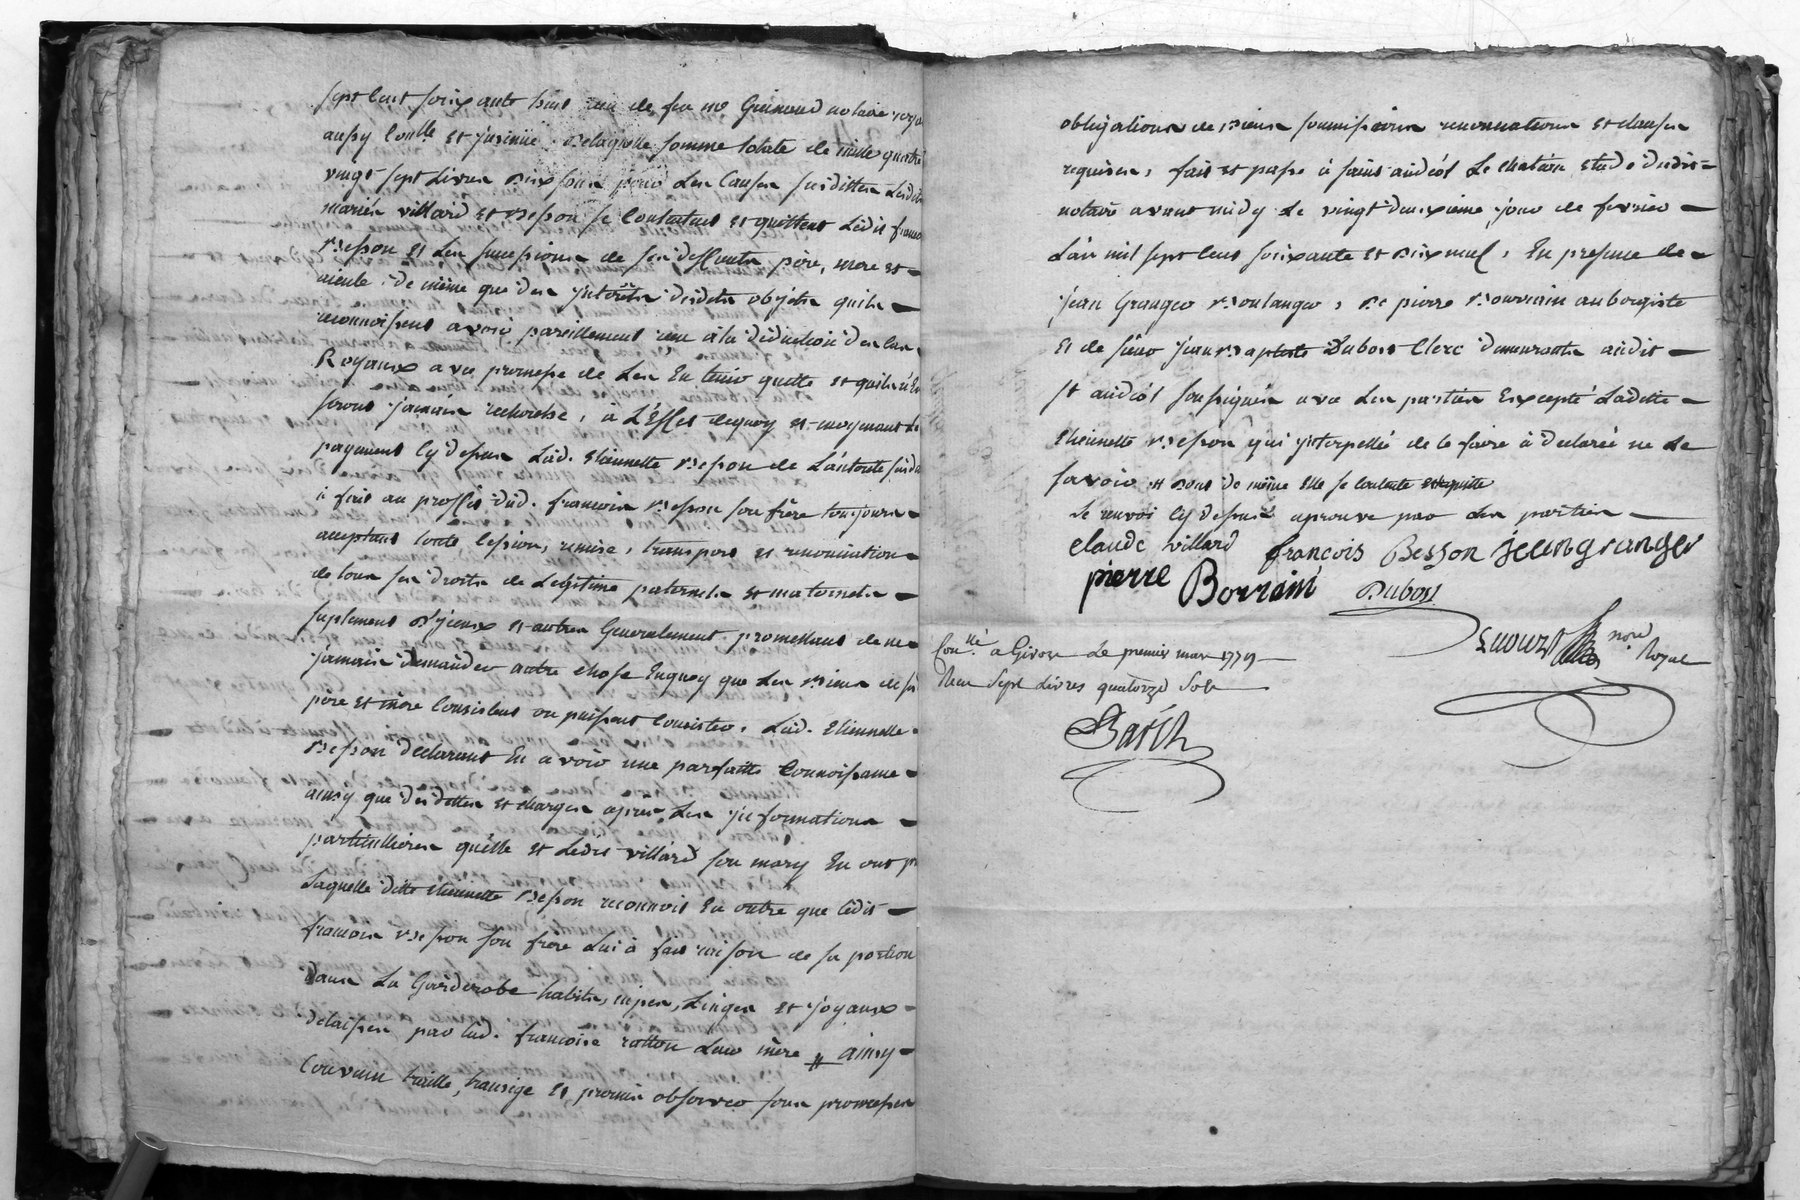 sept cent soixante huit reçu de feu me Guinand notaire roya
aussy conllé et jnsinué. De laquelle somme totale de mille quatre
vingt sept Livres dix sous pour Les Causes susdittes Lesdits
mariés villard et Besson se contentent et quittent Ledit francois
Besson et Les successions de ses deffunts père, mere et
aieule, de même que des jnterêts desdits objets quils
reconnoissent avoir pareillement reçu à la déduction des cas
Royaux avec promesse de Les En tenir quitte et quils n'En
seront jamais recherché, à L'Effet dequoy et moyenant Le
payement cy dessus Lad. Etiennette Besson de L'autorité susd.
à fait au proffit dud. francois Besson son frère toujours
acceptant toute cession, remise, transport et renonciation
de tous ses droits de Legitime paternels et maternels
suplement d'jceux et autres Generalement promettant de ne
jamais demander autre chose Enquoy que Les Biens de sd
père et mère consistent ou puissent consister, Lad. Etiennette
Besson declarant En avoir une parfaitte connoissance
ainsy que des dettes et charges après Les jnformations
particullieres qu'elle et Ledit villard son mary En ont pr
Laquelle ditte Etiennette Besson reconnoit En outre que Ledit
francois Besson son frère Lui à fait raison de sa portion
dans La Garderobe habits, nipes, Linges et joyaux
delaissés par Lad. francoise ratton Leur mère // ainsy
convenu traitté, transigé et promis observer sous promesses
obligations de Biens soumissions renonciations et clauses
requises, fait et passé à saint andéol Le chateau Etude dudit
notaire avant midy Le vingt deuxieme jour de fevrier
L'an mil sept cent soixante et dix neuf, En presence de
jean Granger Boulanger, de pierre Bourrin aubergiste
et de sieur jean Baptiste Dubost clerc demeurants audit
st andéol soussignés avec Les parties Excepté Ladite
Etiennette Besson qui jnterpellée de le faire à declaré ne Le
savoir et dont de même elle se contente et quitte
Le renvoi cy dessus aprouvé par Les parties
claude villard francois Besson jean granger
pierre Borrain Dubost
nore Royal
Conllé a Givors Le premier mars 1779
Reçu Sept Livres quatorze Sols